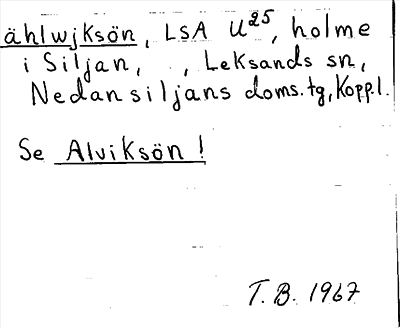 åhlwjksön, LSA U25, holme
i Siljan, , Leksands sn,
Nedansiljans doms.tg, Kopp.l.
Se Alviksön!
T.B. 1967